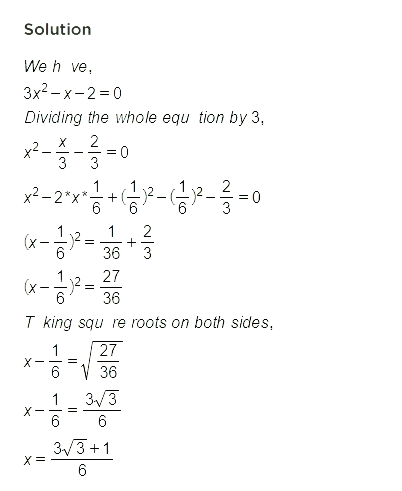 Solution
We h ve,
3x² – x – 2 = 0
Dividing the whole equ tion by 3,
x² – x/3 – 2/3 = 0
x² – 2*x*1/6 + (1/6)² – (1/6)² – 2/3 = 0
(x – 1/6)² = 1/36 + 2/3
(x – 1/6)² = 27/36
T king squ re roots on both sides,
x – 1/6 = √(27/36)
x – 1/6 = 3√3/6
x = (3√3 + 1)/6